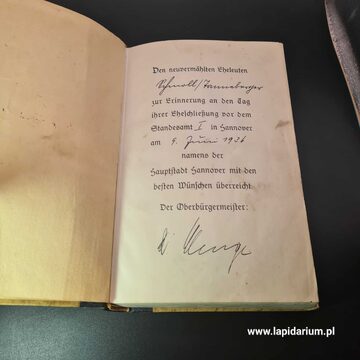 Den neuvermählten Eheleuten
Schmoll/Tanneberger
zur Erinnerung an den Tag
ihrer Eheschließung vor dem
Standesamt I in Hannover
am 4. Juni 1936
namens der
Hauptstadt Hannover mit den
besten Wünschen überreicht
Der Oberbürgermeister:
Menge
www.lapidarium.pl